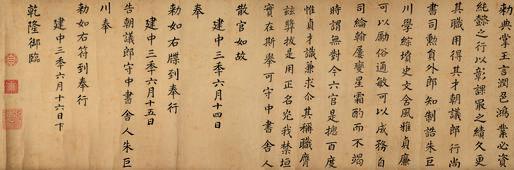 勅典掌王言潤色鴻業必資
純懿之行以彰課最之績久更
其職用得其才朝議郎行尚
書司勳員外郎知制誥朱巨
川學綜墳史文含風雅貞廉
可以勵俗通敏可以成務自
司綸翰屢變星霜酌而不竭
時謂無對今六官是揔百度
惟貞才識兼求僉其稱職膺
茲獎拔是用正名光我禁垣
實在斯舉可守中書舍人
散官如故
建中三年六月十四日
奉
勅如右牒到奉行
建中三年六月十五日
告朝議郎守中書舍人朱巨
川奉
勅如右符到奉行
建中三年六月十六日下
乾隆御臨